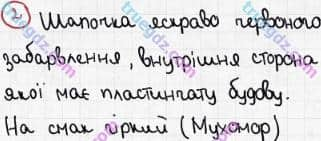 2 Шапочка яскраво червоного
забарвлення, внутрішня сторона
якої має пластинчату будову.
На смак гіркий (Мухомор)